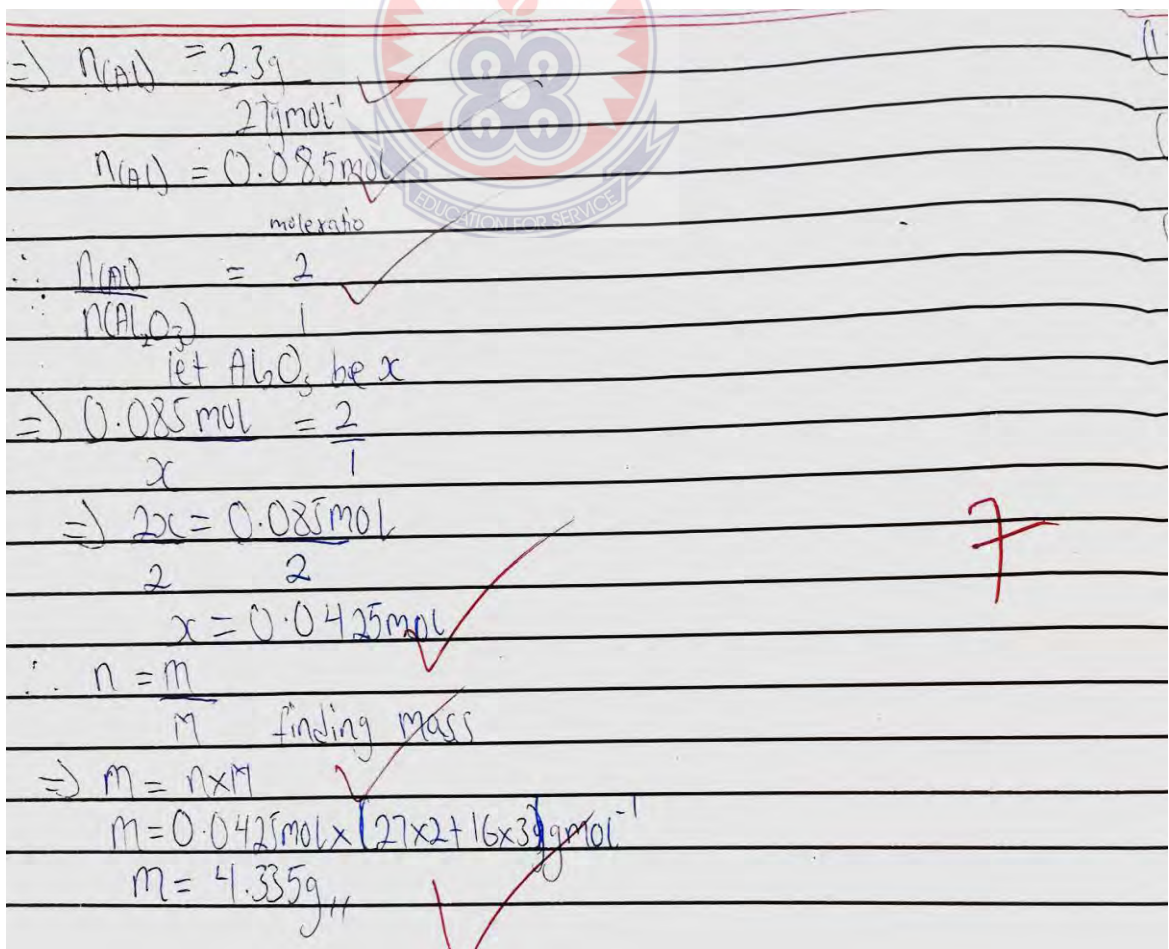 =) n(Al) = 2.3g
27gmol⁻¹
n(Al) = 0.085mol
EDUCATION FOR SERVICE
moleratio
∴ n(Al) = 2
n(Al₂O₃) 1
let Al₂O₃ be x
=) 0.085 mol = 2
x 1
=) 2x = 0.085mol
2 2
7
x = 0.0425mol
∴ n = m
M finding mass
=) m = n×M
m = 0.0425mol × (27×2+16×3)gmol⁻¹
m = 4.335g,,